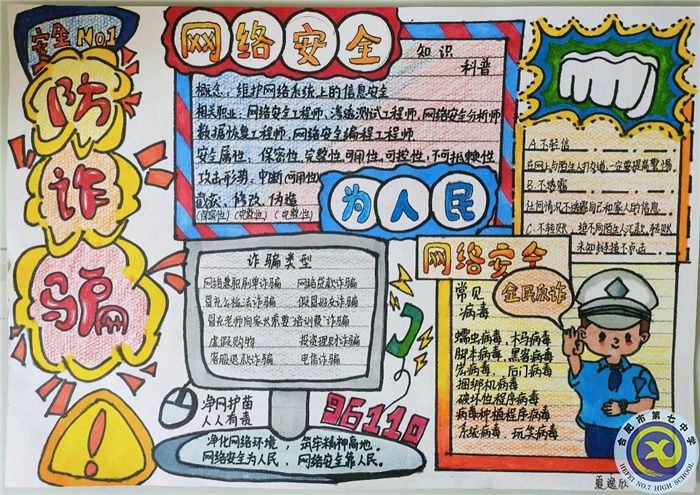 安全No1
防
诈
骗
网络安全
知识
科普
概念：维护网络系统上的信息安全
相关职业：网络安全工程师，渗透测试工程师，网络安全分析师
数据恢复工程师，网络安全编程工程师
安全属性：保密性，完整性，可用性，可控性，不可抵赖性
攻击形势：中断(可用性)
截获、修改、伪造
(保密性)(完整性)(完整性)
为人民
A.不轻信
在网上与陌生人打交道，一定要提高警惕
B.不透露
任何情况不透露自己和家人的信息
C.不转账，绝不向陌生人汇款、转账
未知链接不点击
诈骗类型
网络兼职刷单诈骗 网络贷款诈骗
冒充公检法诈骗
冒充老师向家长索要"培训费"诈骗
虚假购物 投资理财诈骗
客服退款诈骗 电信诈骗
净网护苗
人人有责
96110
净化网络环境，筑牢精神高地。
网络安全为人民，网络安全靠人民。
网络安全
全民反诈
常见
病毒
蠕虫病毒，木马病毒
脚本病毒，黑客病毒
宏病毒，后门病毒
捆绑机病毒
破坏性程序病毒
病毒种植程序病毒
系统病毒，玩笑病毒
合肥市第七中学
HEFEI NO.7 HIGH SCHOOL